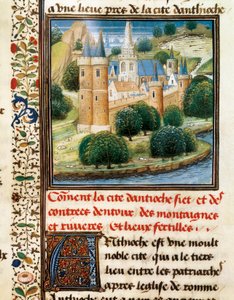 a une lieue pres de la cite danthioche
Coment la cite dantioche siet et des
contrees dentour des montaignes
et rivieres et lieux fertilles
Anthioche est une moult
noble cite qui a le tiers
lieu entre les patriarches
apres leglise de romme